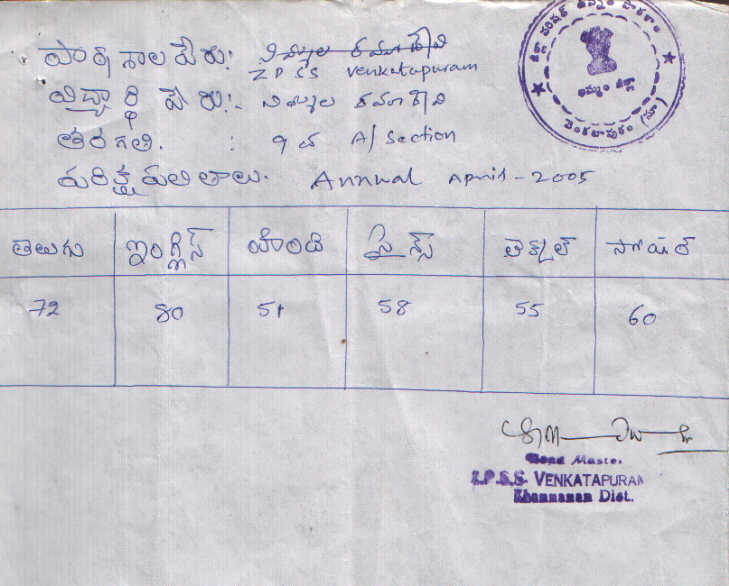 పాఠశాల పేరు: నిమ్మల రమాదేవి
Z P S S Venkatapuram
విద్యార్థి పేరు:- నిమ్మల రమాదేవి
తరగతి. : 9 వ A/ Section
పరీక్ష ఫలితాలు. Annual April - 2005
తెలుగు ఇంగ్లీస్ హింది సైన్స్ లెక్కల్ సోషల్
72 80 51 58 55 60
Head Master
Z.P.S.S. VENKATAPURAM
Khammam Dist.